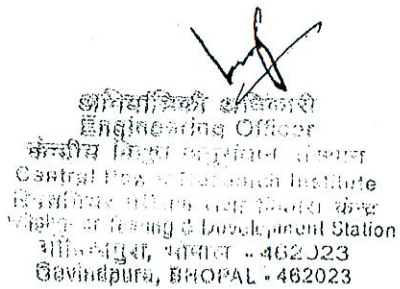 अभियांत्रिकी अधिकारी
Engineering Officer
केन्द्रीय विद्युत अनुसंधान संस्थान
Central Power Research Institute
केन्द्र
Testing & Development Station
गोविन्दपुरा, भोपाल - 462023
Govindpura, BHOPAL - 462023